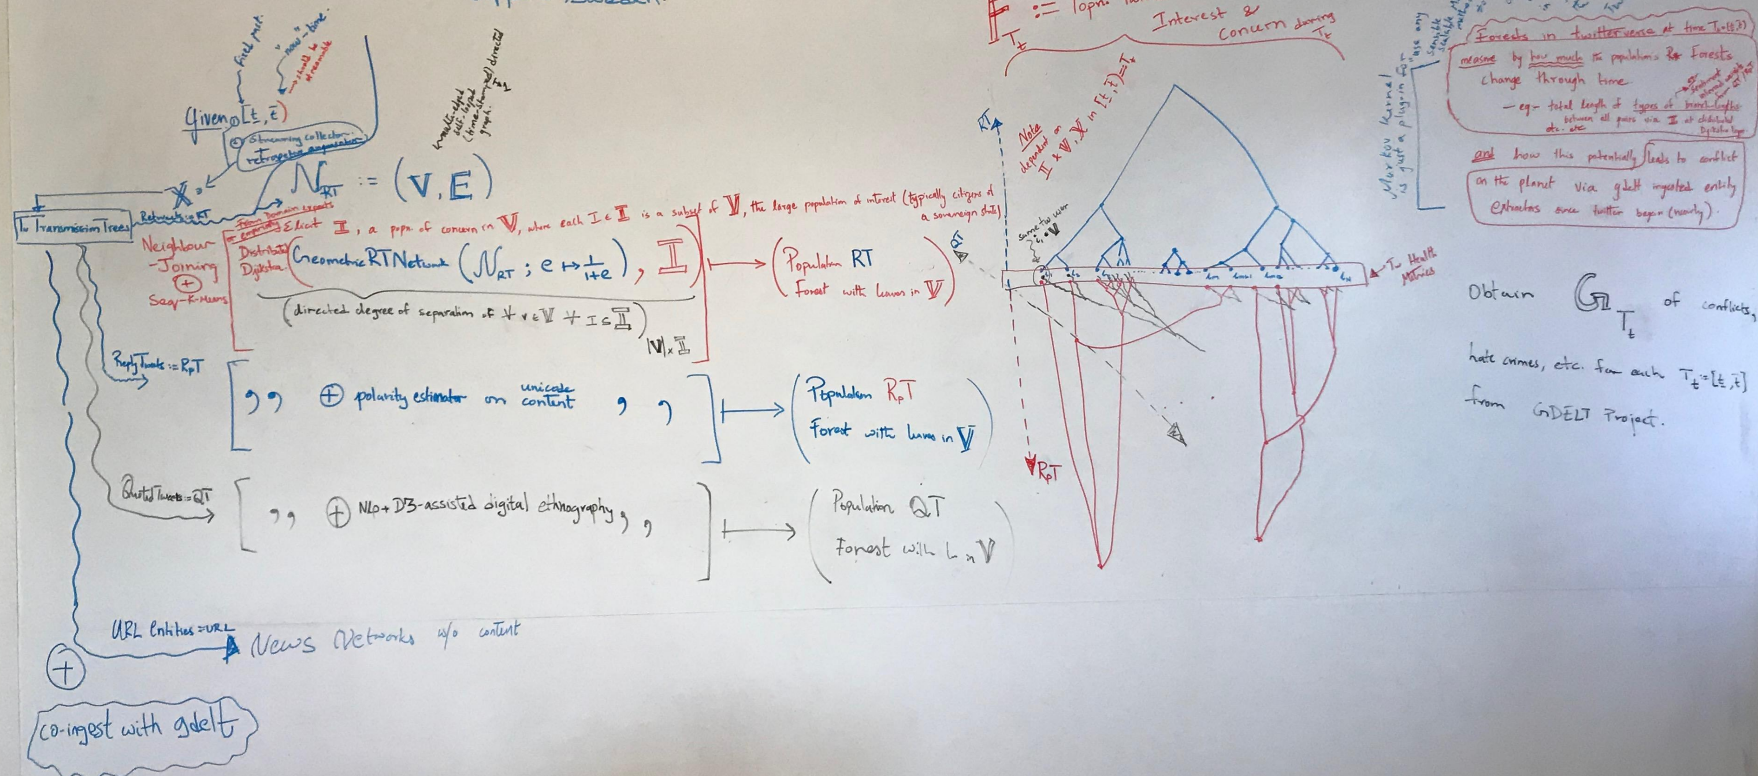 F := Topn.
T_t
Interest &
concern during
T_t
"now-time"
→ should be
streamable
Given [t, t̄)
⊕ Streaming collector
retrospective augmentation
multi-edged
self-looped
(time-stamped) directed
graph.
𝕏
N_RT := (V, E)
Tw Transmission Trees
Retweets = RT
From Domain experts
Elicit 𝕀, a popn. of concern in 𝕍, where each I ∈ 𝕀 is a subset of 𝕍, the large population of interest (typically citizens of
a sovereign state)
Neighbour
-Joining
⊕
Seq-K-Means
Distributed
Dijkstra
(Geometric RT Network (N_RT ; e ↦ 1/(1+e)), 𝕀)
(directed degree of separation of ∀ v ∈ 𝕍 ∀ I ∈ 𝕀)
|𝕍| × 𝕀
(Population RT
Forest with leaves in 𝕍)
Reply Tweets := RpT
[ ,, ⊕ polarity estimator on unicode content , , ]
(Population RpT
Forest with leaves in 𝕍)
Quoted Tweets = QT
[ ,, ⊕ NLP + D3-assisted digital ethnography, , ]
(Population QT
Forest with L in 𝕍)
URL Entities = URL
News Networks w/o content
⊕
co-ingest with gdelt
RT
Note
dependent on
𝕀 & 𝕍, 𝕏 in [t, t̄) = T_t
same tw user
QT
RpT
Tw Health
Metrics
Markov Kernel
is just a plug-in for
"use any
sensible
scalable
Forests in twitterverse at time T_t = [t, t̄)
measure by how much the populations Forests
change through time
- eg - total length of types of branch-lengths
between all pairs via 𝕀 at distributed
etc. etc
Dijkstra
and how this potentially leads to conflict
on the planet via gdelt ingested entity
extractors since twitter began (nearly).
Obtain G_T_t of conflicts,
hate crimes, etc. for each T_t = [t, t̄]
from GDELT Project.